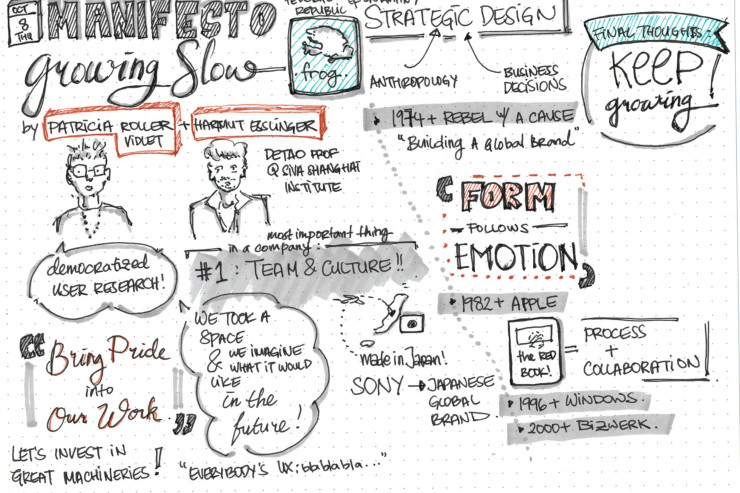 OCT
8
THU
MANIFESTO
growing Slow
REPUBLIC
frog.
STRATEGIC DESIGN
ANTHROPOLOGY
BUSINESS
DECISIONS
FINAL THOUGHTS:
KEEP
growing!
by PATRICIA ROLLER + HARTMUT ESSLINGER
VIOLET
DETAO PROF
@ SIVA SHANGHAI
INSTITUTE
1974 + REBEL W/ A CAUSE
"Building A Global Brand"
FORM
FOLLOWS
EMOTION
most important thing
in a company:
#1: TEAM & CULTURE!!
democratized
USER RESEARCH!
1982 + APPLE
WE TOOK A
SPACE
& WE IMAGINE
WHAT IT WOULD
LIKE
in the
future!
Made in Japan!
SONY → JAPANESE
GLOBAL
BRAND
the RED
BOOK!
= PROCESS
+
COLLABORATION
"Bring Pride
into
Our Work"
1996 + WINDOWS.
2000 + BIZWERK.
LET'S INVEST IN
GREAT MACHINERIES!
"EVERYBODY'S UX: blablabla..."